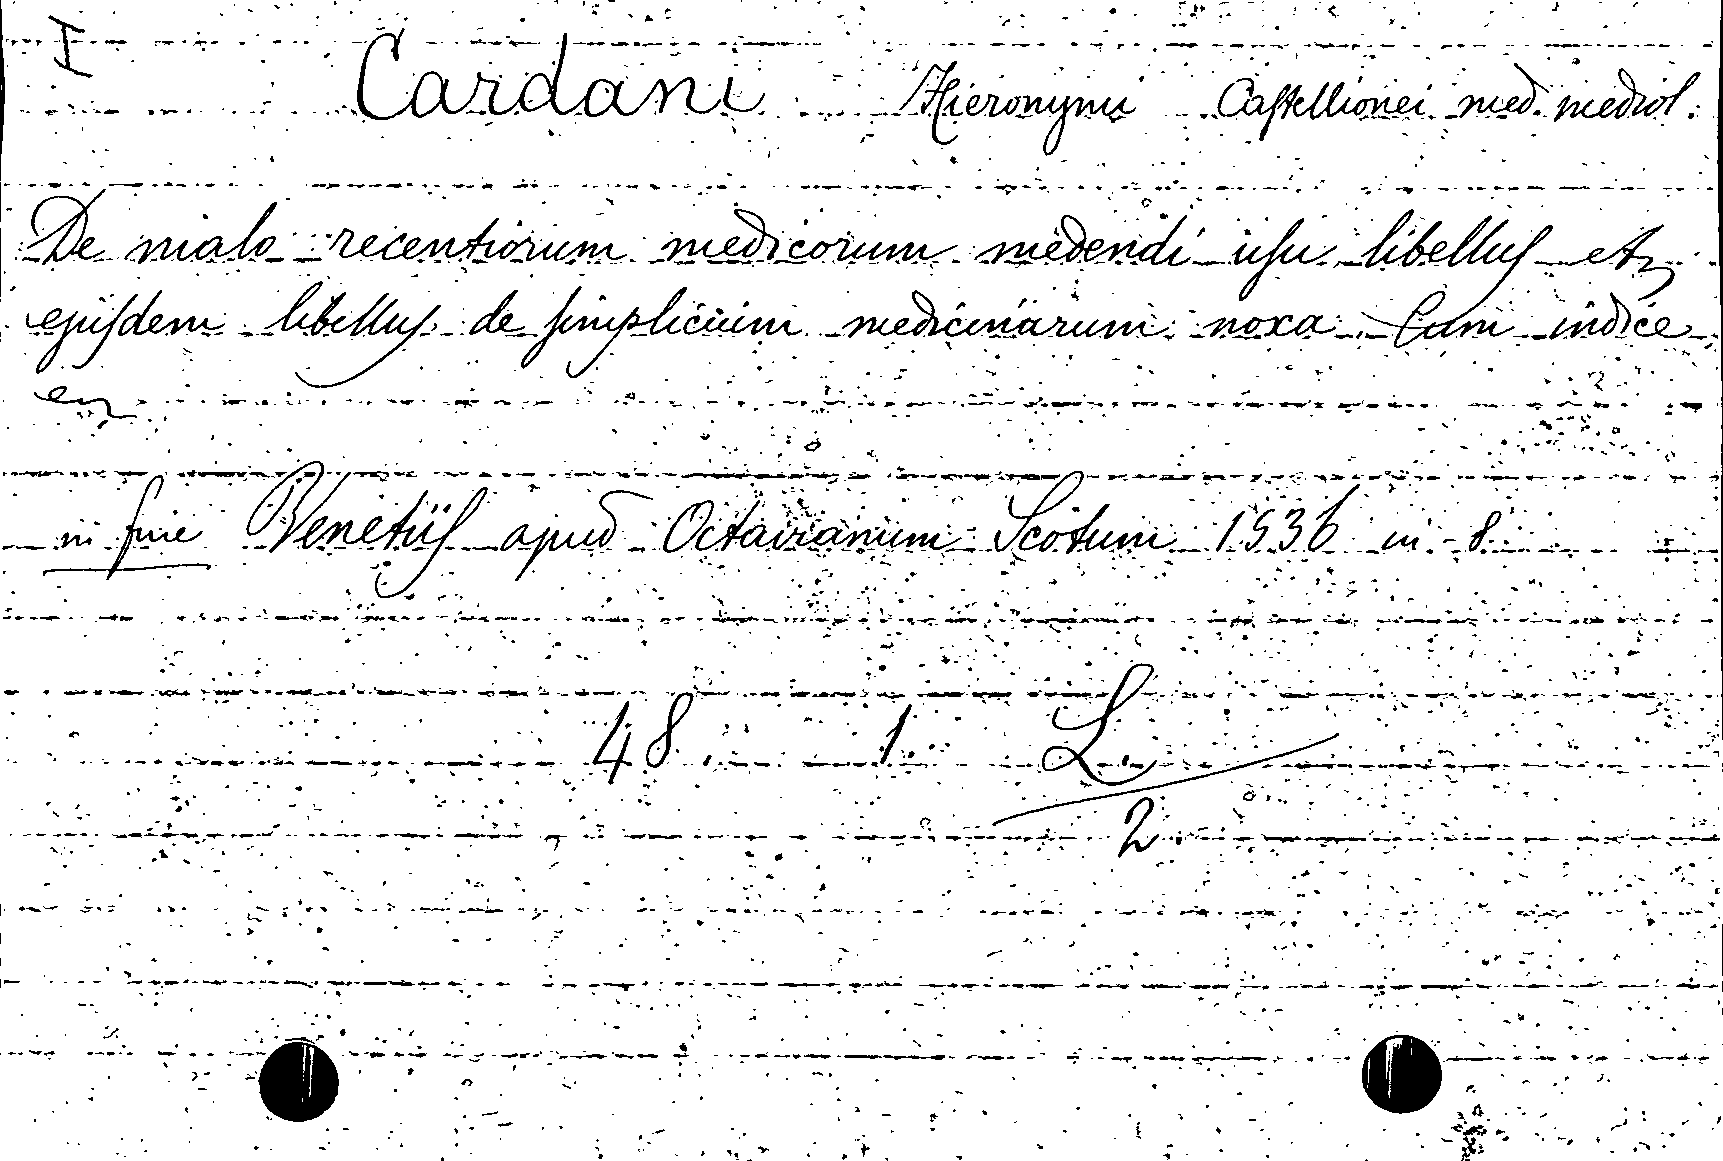 I
Cardani Hieronymi Castellionei med. mediol.
De malo recentiorum medicorum medendi usu libellus etz
ejusdem libellus de simplicium medicinarum noxa. Cum indice
ez
in fine Venetiis apud Octavianum Scotum 1536 in 8
48. 1. L.
2.